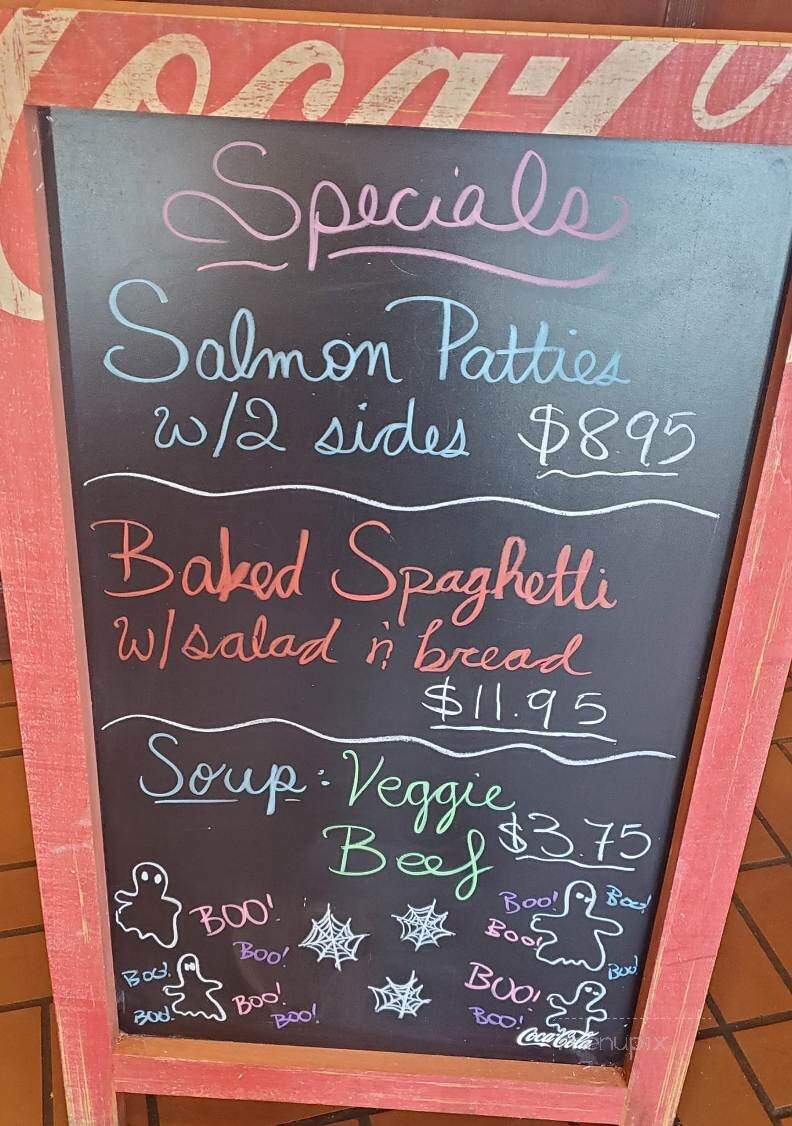 Coca-Cola
Specials
Salmon Patties
w/2 sides $8.95
Baked Spaghetti
w/salad n' bread
$11.95
Soup: Veggie
Beef $3.75
BOO! BOO! BOO!
BOO! BOO!
BOO!
BOO! BOO! BOO!
BOO! BOO! BOO!
BOO!
Coca-Cola
menupix